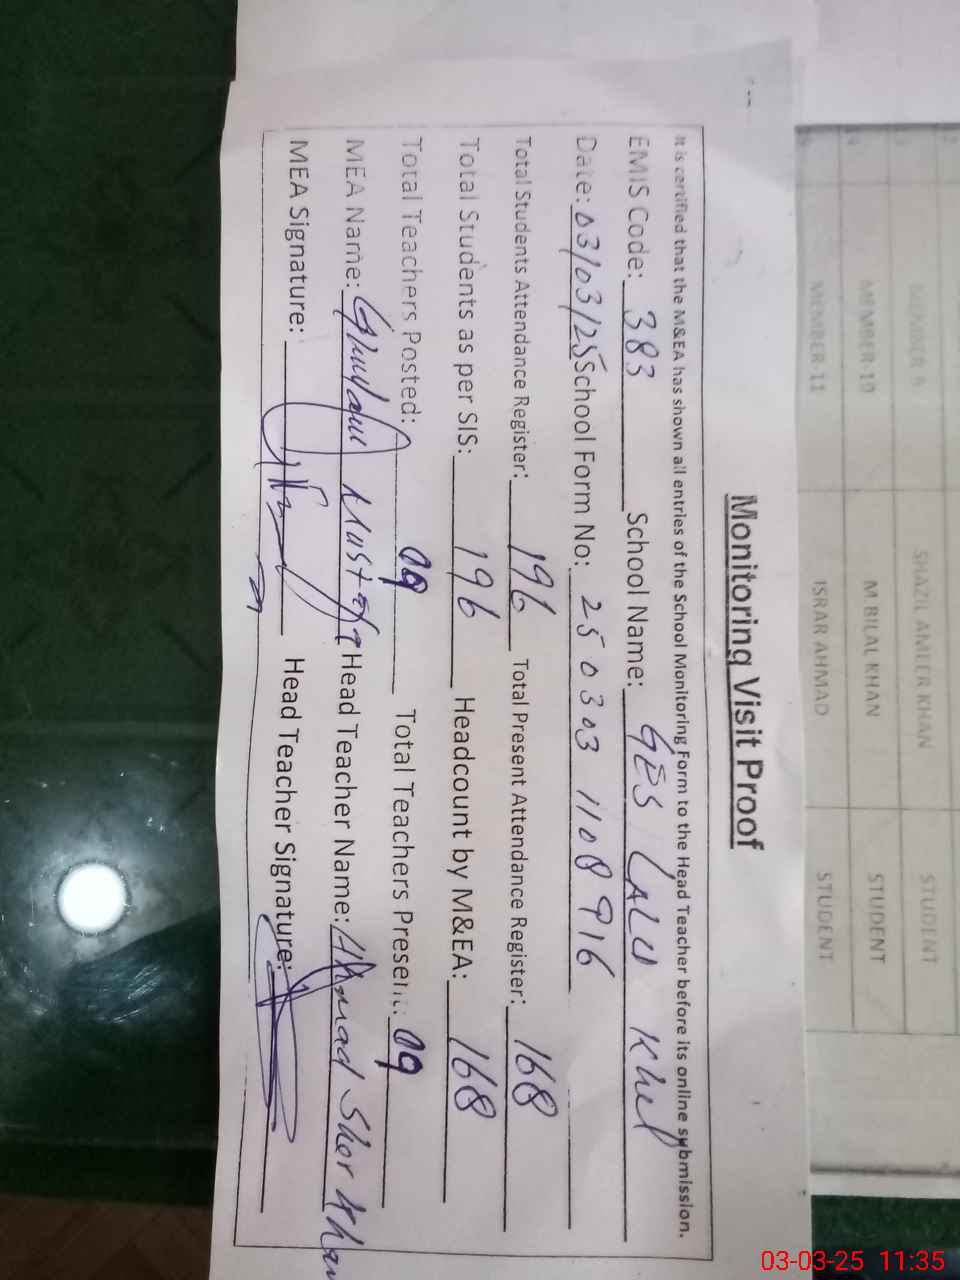 Monitoring Visit Proof
It is certified that the M&EA has shown all entries of the School Monitoring Form to the Head Teacher before its online submission.
EMIS Code: 383 School Name: GES LALU Khel
Date: 03/03/25 School Form No: 2503031108916
Total Students Attendance Register: 196 Total Present Attendance Register: 168
Total Students as per SIS: 196 Headcount by M&EA: 168
Total Teachers Posted: 09 Total Teachers Present: 09
MEA Name: Ghulam Mustafa Head Teacher Name: Ahmad Sher Khan
MEA Signature: Head Teacher Signature:
SHAZIL AMEER KHAN STUDENT
MEMBER-10 M.BILAL KHAN STUDENT
MEMBER-11 ISRAR AHMAD STUDENT
03-03-25 11:35